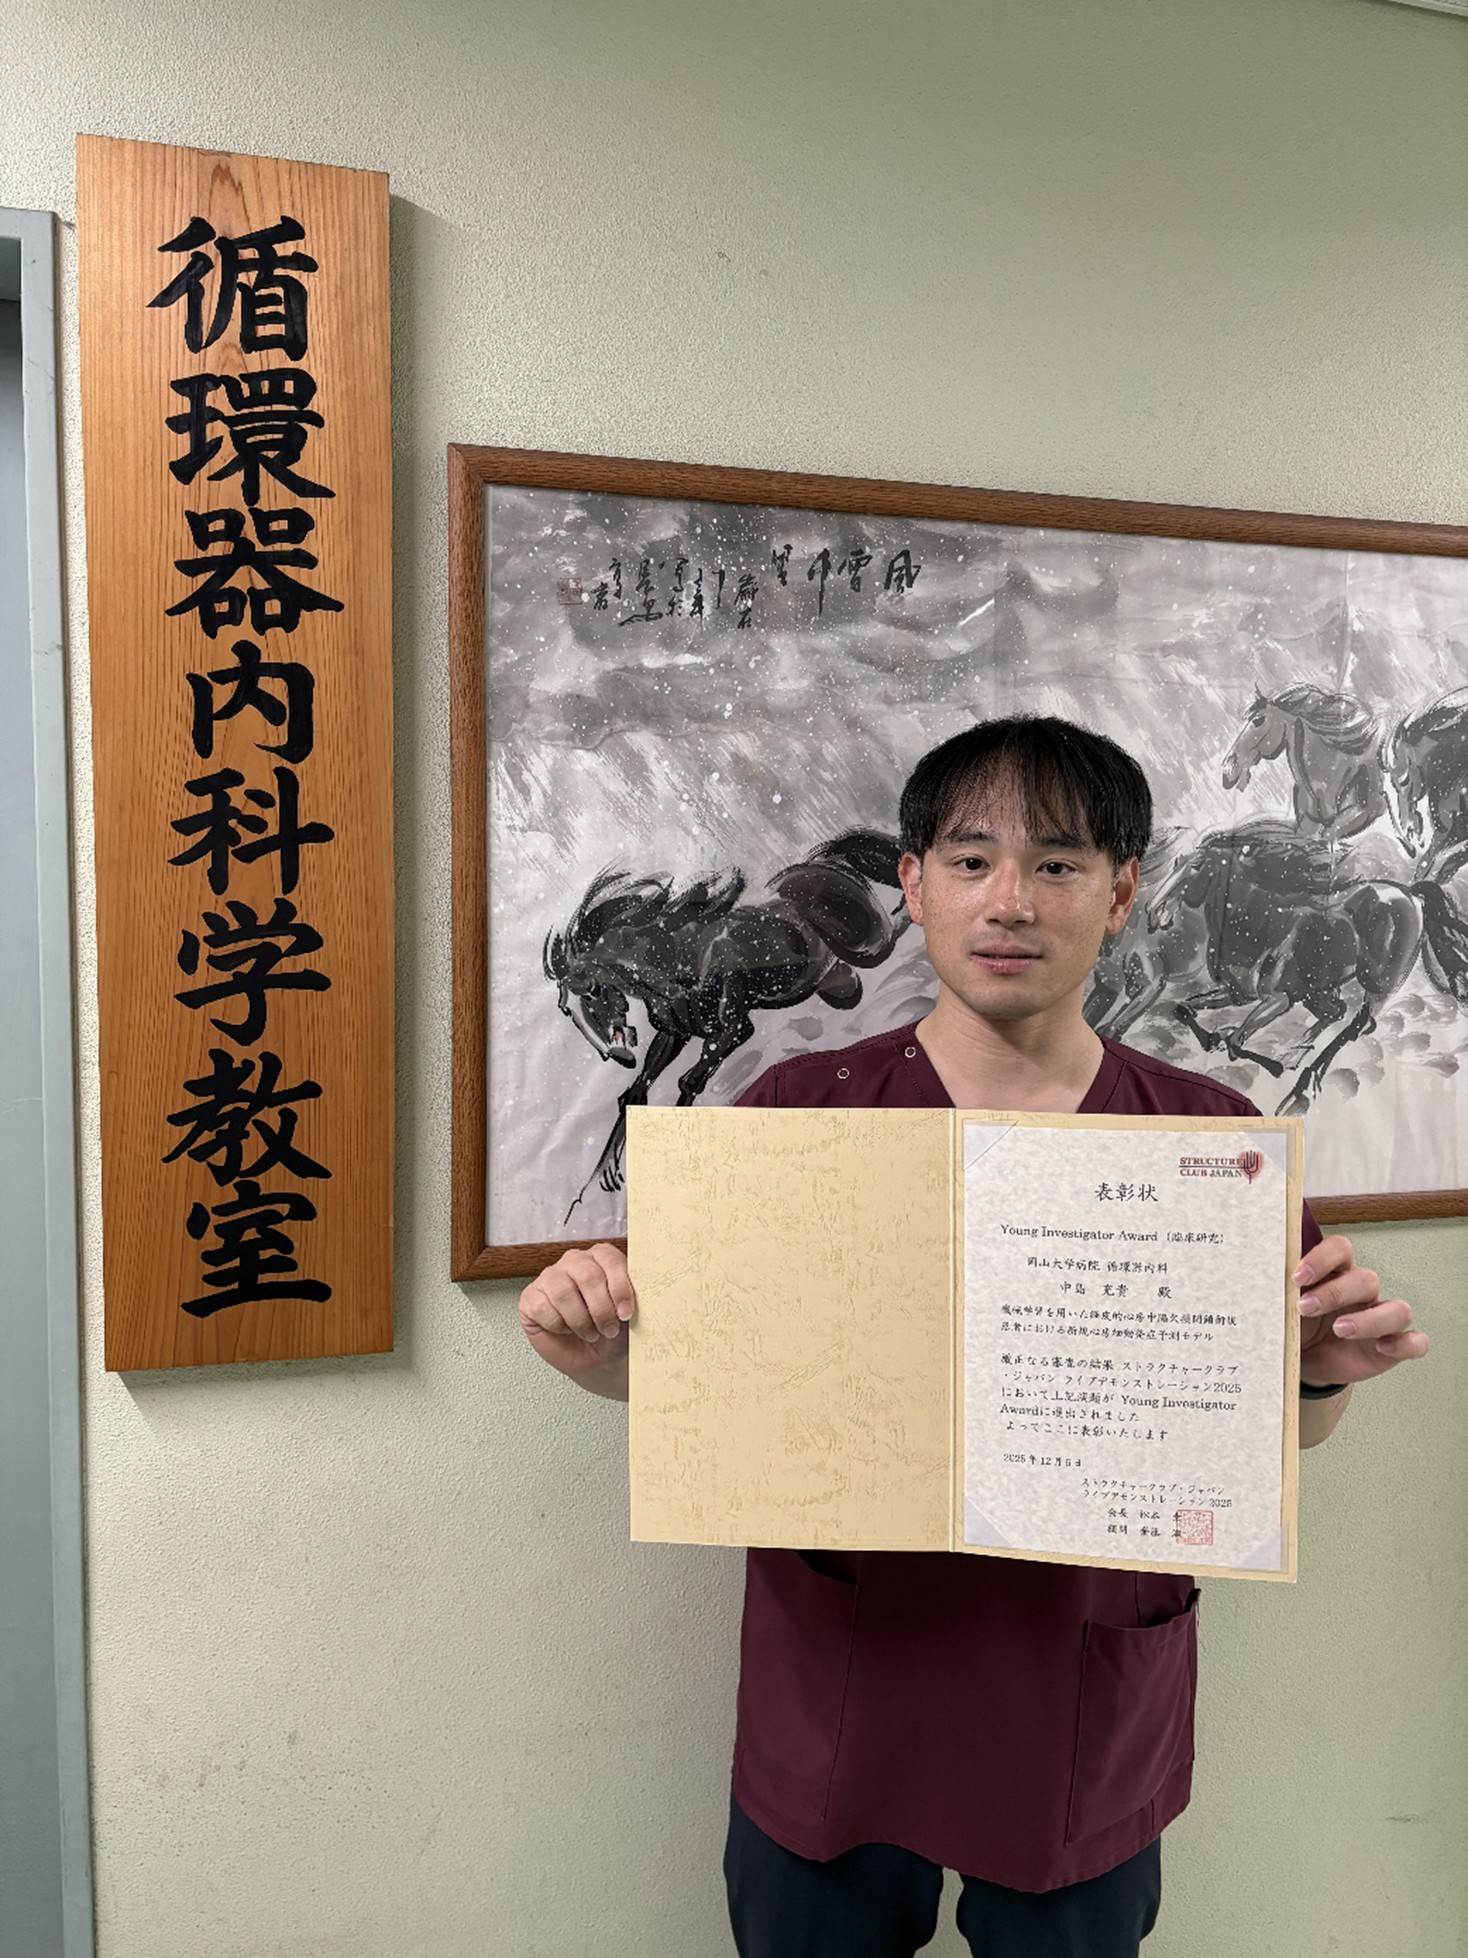 循環器内科学教室
風雪中
STRUCTURE
CLUB JAPAN
表彰状
Young Investigator Award (臨床研究)
岡山大学病院 循環器内科
中島 充貴 殿
機械学習を用いた経皮的心房中隔欠損閉鎖術後
患者における新規心房細動発症予測モデル
厳正なる審査の結果 ストラクチャークラブ
・ジャパン ライブデモンストレーション2025
において上記演題が Young Investigator
Awardに選出されました
よってここに表彰いたします
2025年12月6日
ストラクチャークラブ・ジャパン
ライブデモンストレーション2025
会長 松本
顧問